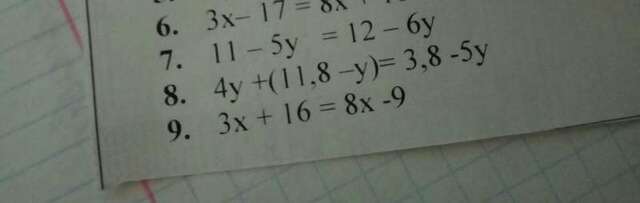 6. 3x– 17 = 8x
7. 11 – 5y = 12 – 6y
8. 4y +(11,8 –y)= 3,8 -5y
9. 3x + 16 = 8x -9